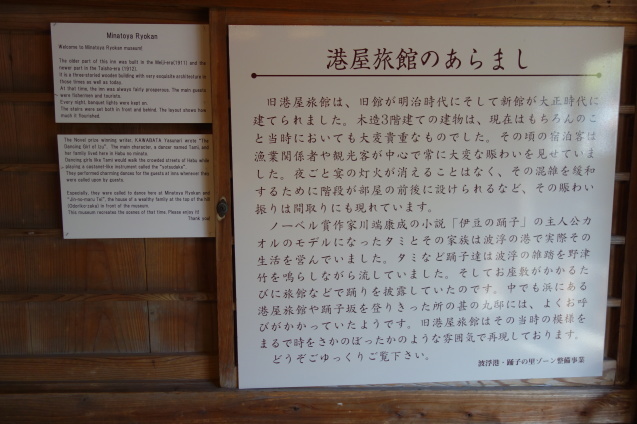 Minatoya Ryokan
Welcome to Minatoya Ryokan museum!
The older part of this inn was built in the Meiji-era(1911) and the
newer part in the Taisho-era (1912).
It is a three-storied wooden building with very exquisite architecture in
those times as well as today.
At that time, the inn was always fairly prosperous. The main guests
were fishermen and tourists.
Every night, banquet lights were kept on.
The stairs were set both in front and behind. The layout shows how
much it flourished.
The Novel prize winning writer, KAWABATA Yasunari wrote "The
Dancing Girl of Izu". The main character, a dancer named Tami, and
her family lived here in Habu no minato.
Dancing girls like Tami would walk the crowded streets of Habu while
playing a castanet-like instrument called the "yotsudake".
They performed charming dances for the guests at inns whenever they
were called upon by guests.
Especially, they were called to dance here at Minatoya Ryokan and
"Jin-no-maru Tei", the house of a wealthy family at the top of the hill
(Odorikozaka) in front of the museum.
This museum recreates the scenes of that time. Please enjoy it!
Thank you!
港屋旅館のあらまし
旧港屋旅館は、旧館が明治時代にそして新館が大正時代に
建てられました。木造3階建ての建物は、現在はもちろんのこ
と当時においても大変貴重なものでした。その頃の宿泊客は
漁業関係者や観光客が中心で常に大変な賑わいを見せていま
した。夜ごと宴の灯火が消えることはなく、その混雑を緩和
するために階段が部屋の前後に設けられるなど、その賑わい
振りは間取りにも現れています。
ノーベル賞作家川端康成の小説「伊豆の踊子」の主人公カ
オルのモデルになったタミとその家族は波浮の港で実際その
生活を営んでいました。タミなど踊子達は波浮の雑踏を野津
竹を鳴らしながら流していました。そしてお座敷がかかるた
びに旅館などで踊りを披露していたのです。中でも浜にある
港屋旅館や踊子坂を登りきった所の甚の丸邸には、よくお呼
びがかかっていたようです。旧港屋旅館はその当時の模様を
まるで時をさかのぼったかのような雰囲気で再現しております。
どうぞごゆっくりご覧下さい。
波浮港・踊子の里ゾーン整備事業